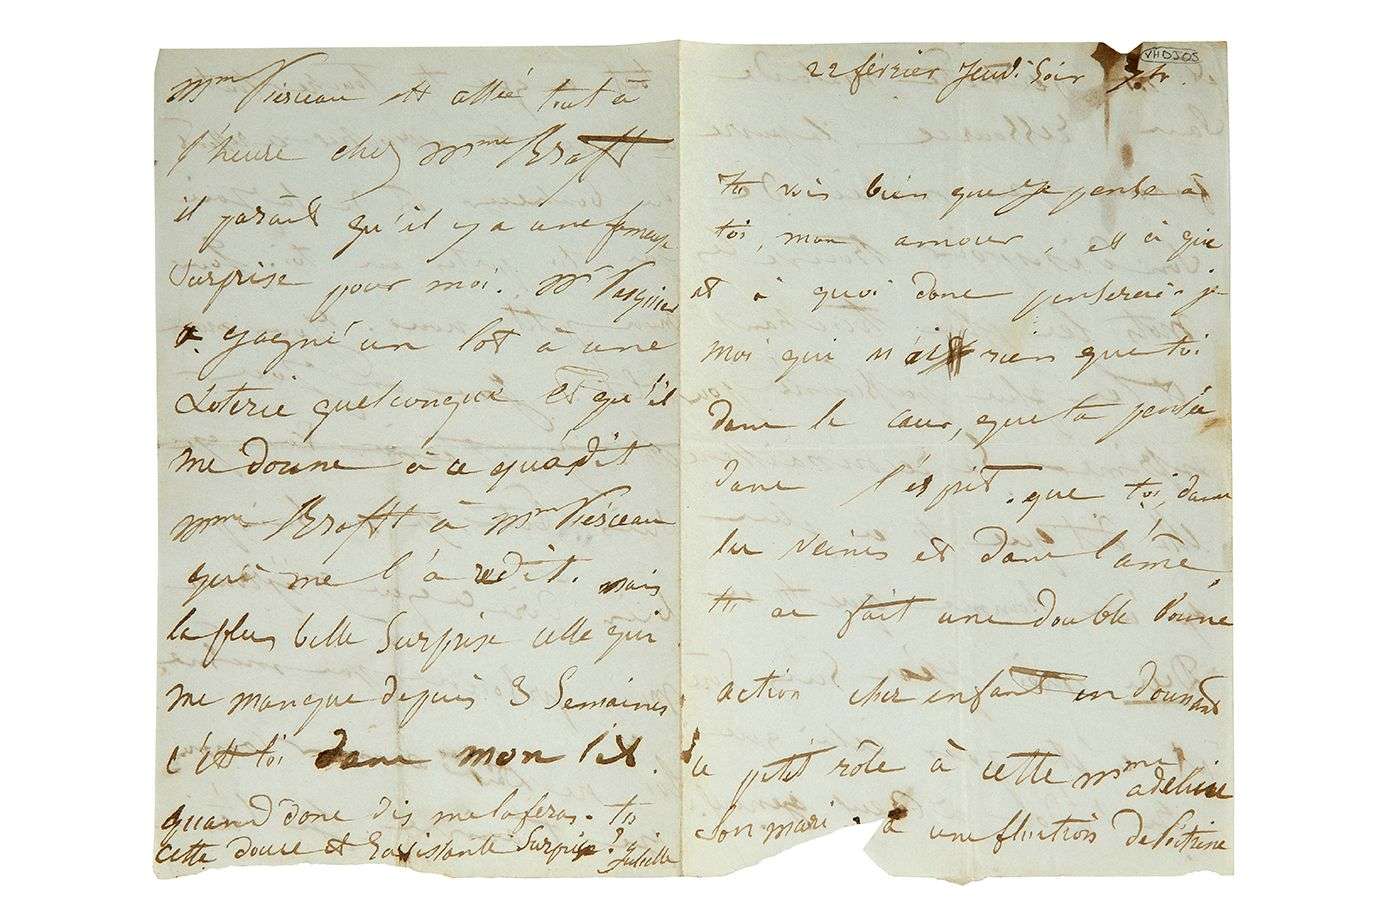 VHDJ05
22 février Jeudi Soir 7 h.
tu vois bien que je pense à
toi, mon amour, et à qui
et à quoi donc penserais-je
moi qui n'ai rien que toi
dans le cœur, que ta pensée
dans l'esprit, que toi, dans
les veines et dans l'âme,
tu as fait une double bonne
action cher enfant en donnant
ce petit rôle à cette Mme adeline
son mari a une fluxion de Poitrine
Mme Pierceau est allée tout à
l'heure chez Mme Krafft
il parait qu'il y a une fameuse
surprise pour moi. Mr Pasquier
a gagné un lot à une
Loterie quelconque et qu'il
me donne à ce qu'a dit
Mme Krafft à Mme Pierceau
qui me l'a redit. mais
la plus belle surprise celle qui
me manque depuis 3 Semaines
c'est toi dans mon lit.
quand donc dis me la feras-tu
cette douce et ravissante Surprise ?
Juliette